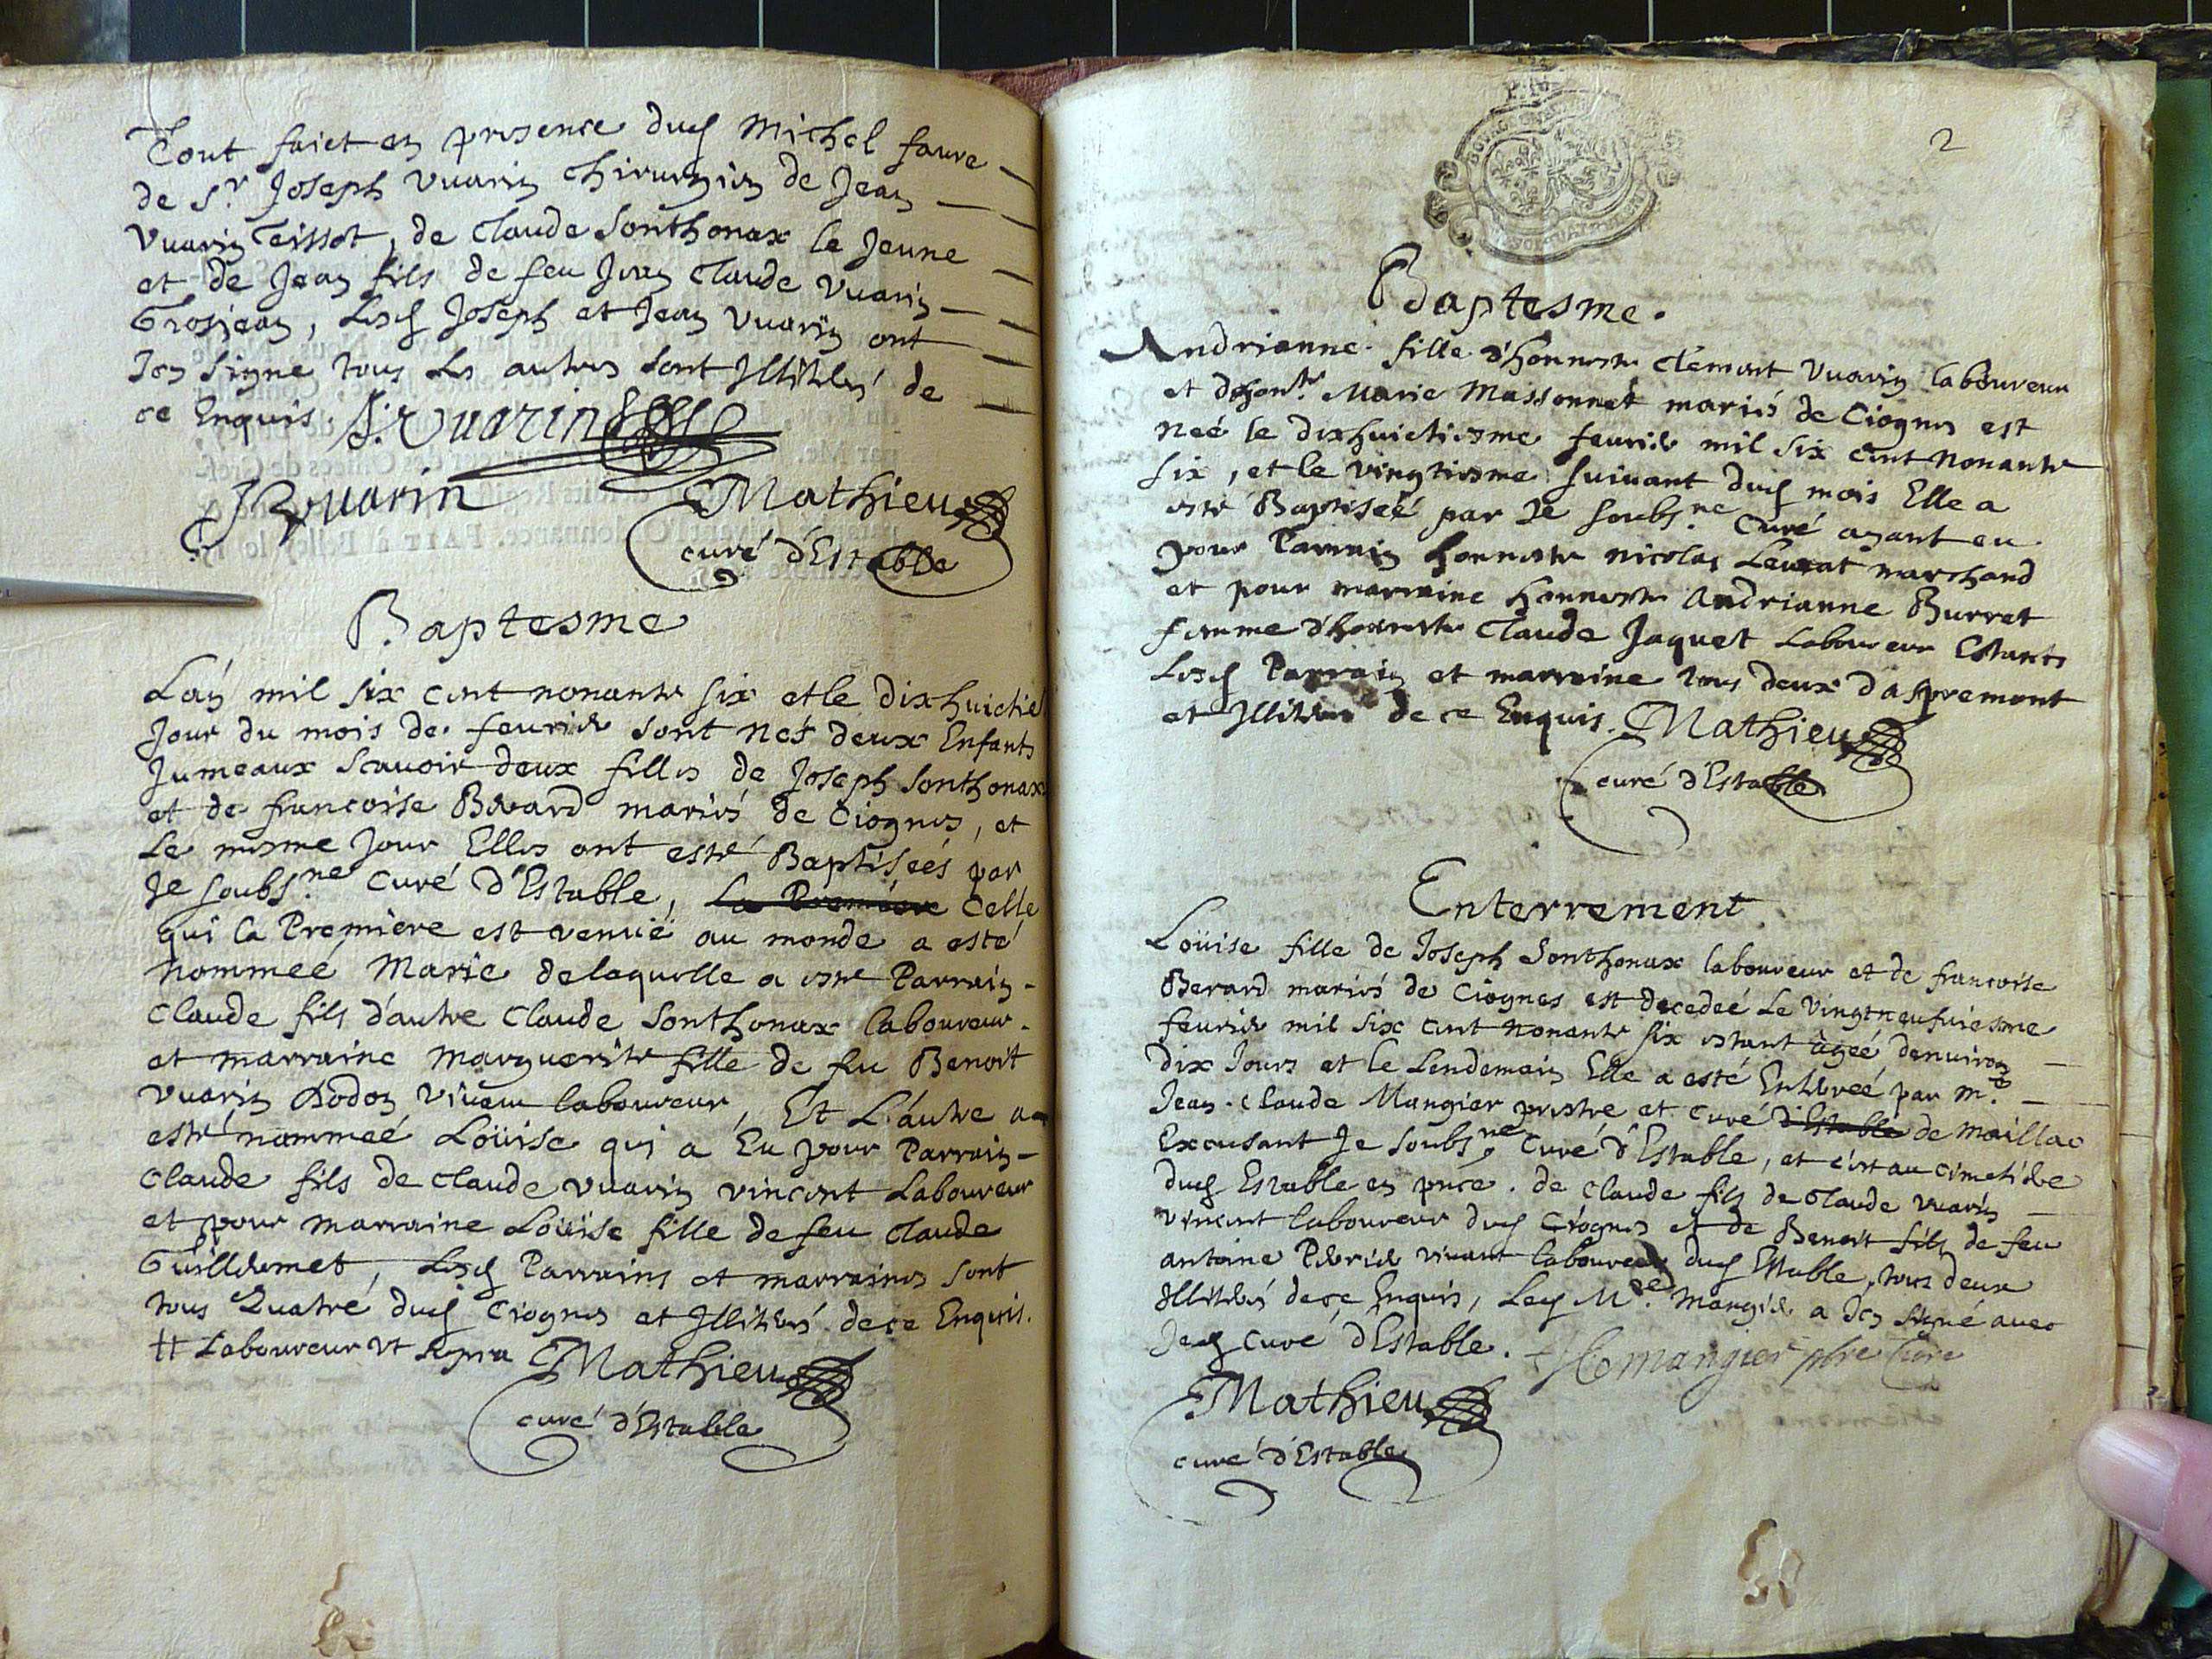 Tout faict en presence dud Michel faure
de Sr Joseph Vuarin Chirurgien de Jean
Vuarin Teissot, de Claude Sonthonax le Jeune
et de Jean fils de feu Jean Claude Vuarin
Grosjean, Lesd Joseph et Jean Vuarin ont
Icy signe tous les autres sont Illitérés de
ce Enquis. J: Vuarin
J Vuarin Mathieu
curé d'Estable
Baptesme
L'an mil six cent nonante six et le dixhuictie
Jour du mois de feurier sont Nés deux Enfants
Jumeaux scauoir deux filles de Joseph Sonthonax
et de francoise Berard mariés de Ciognes, et
Le mesme Jour Elles ont esté Baptiseés par
Je soubsne Curé d'Estable, La Premiere Celle
qui la Premiere est venue au monde a esté
Nommeé Marie delaquelle a este Parrain
Claude fils d'autre Claude Sonthonax laboureur
et marraine Marguerite fille de feu Benoit
Vuarin Dodon Viuant laboureur, Et L'autre a
esté nommeé Loüise qui a Eu pour Parrain
Claude fils de Claude Vuarin vincent Laboureur
et pour marraine Loüise fille de feu Claude
Guillermet, Lesd Parrains et marraines sont
tous Quatre dud Ciognes et Illitérés de ce Enquis.
# Laboureur vt supra Mathieu
curé d'Estable
2
Baptesme.
Andrianne fille d'honneste Clement Vuarin laboureur
et d'honte Marie Massonnet mariés de Ciognes est
Neé le dixhuictiesme feurier mil six cent Nonante
six, et le vingtiesme suiuant dud mois Elle a
esté Baptiseé par Je soubsne Curé ayant eu
pour Parrain honneste Nicolas Leurat marchand
et pour marraine honneste Andrianne Burret
femme d'honneste Claude Jaquet Laboureur Estants
Lesd Parrain et marraine tous deux d'aspremont
et Illitérés de ce Enquis. Mathieu
curé d'Estable
Enterrement
Loüise fille de Joseph Sonthonax laboureur et de francoise
Berard mariés de Ciognes est decedeé Le Vingtneufuiesme
feurier mil six cent Nonante six estant àgeé denuiron
dix Jours et le Lendemain Elle a esté Enterreé par mre
Jean-Claude Mangier prestre et Curé d'Estable de Maillac
Excusant Je soubsne Curé d'Estable, et c'est au cimetiere
dud Estable en pnce. de Claude fils de Claude Vuarin
Vincent laboureur dud Ciognes et de Benoit fils de feu
Antoine Perrier viuant laboureur dud Estable, tous deux
Illitérés de ce Enquis, Led Mre Mangier a Icy signé auec
Jed Curé d'Estable. Mangier pbre Cure
Mathieu
curé d'Estable